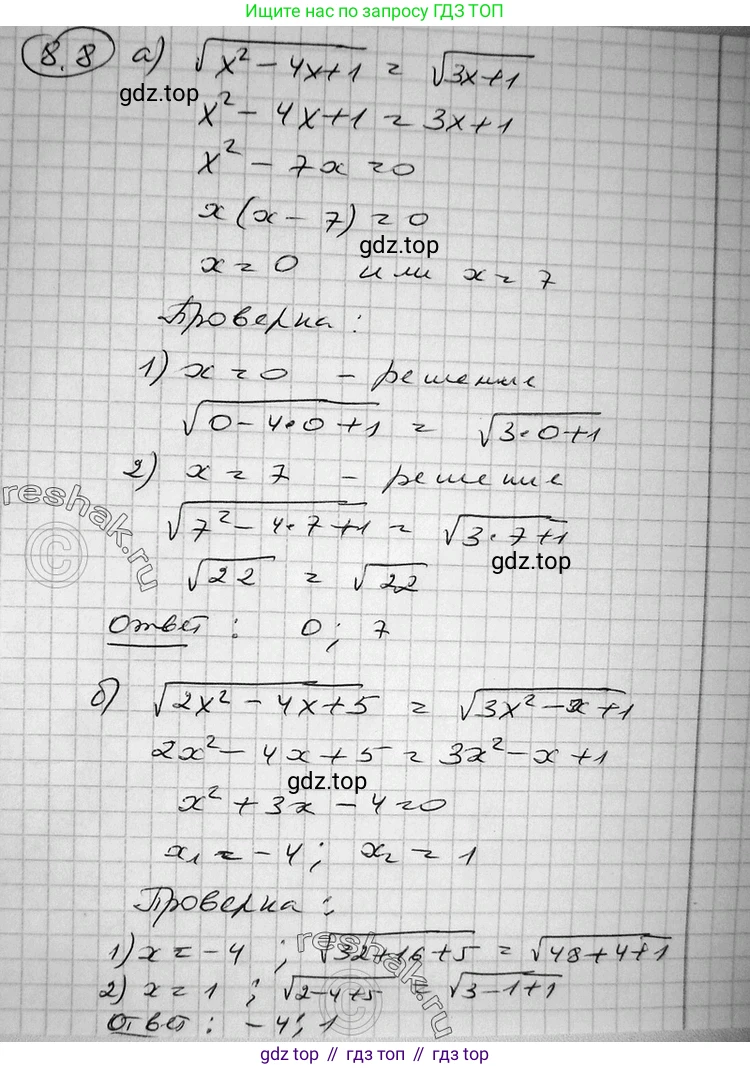 Ищите нас по запросу ГДЗ ТОП
8.8 а) √(x² - 4x + 1) = √(3x + 1)
gdz.top
x² - 4x + 1 = 3x + 1
x² - 7x = 0
x(x - 7) = 0
gdz.top
x = 0 или x = 7
Проверка:
1) x = 0 - решение
√(0 - 4·0 + 1) = √(3·0 + 1)
2) x = 7 - решение
reshak.ru
√(7² - 4·7 + 1) = √(3·7 + 1)
gdz.top
©
√22 = √22
Ответ: 0; 7
б) √(2x² - 4x + 5) = √(3x² - x + 1)
2x² - 4x + 5 = 3x² - x + 1
gdz.top
x² + 3x - 4 = 0
x₁ = -4; x₂ = 1
Проверка:
reshak.ru
1) x = -4; √(32 + 16 + 5) = √(48 + 4 + 1)
2) x = 1; √(2 - 4 + 5) = √(3 - 1 + 1)
©
Ответ: -4; 1
gdz top // гдз топ // gdz.top